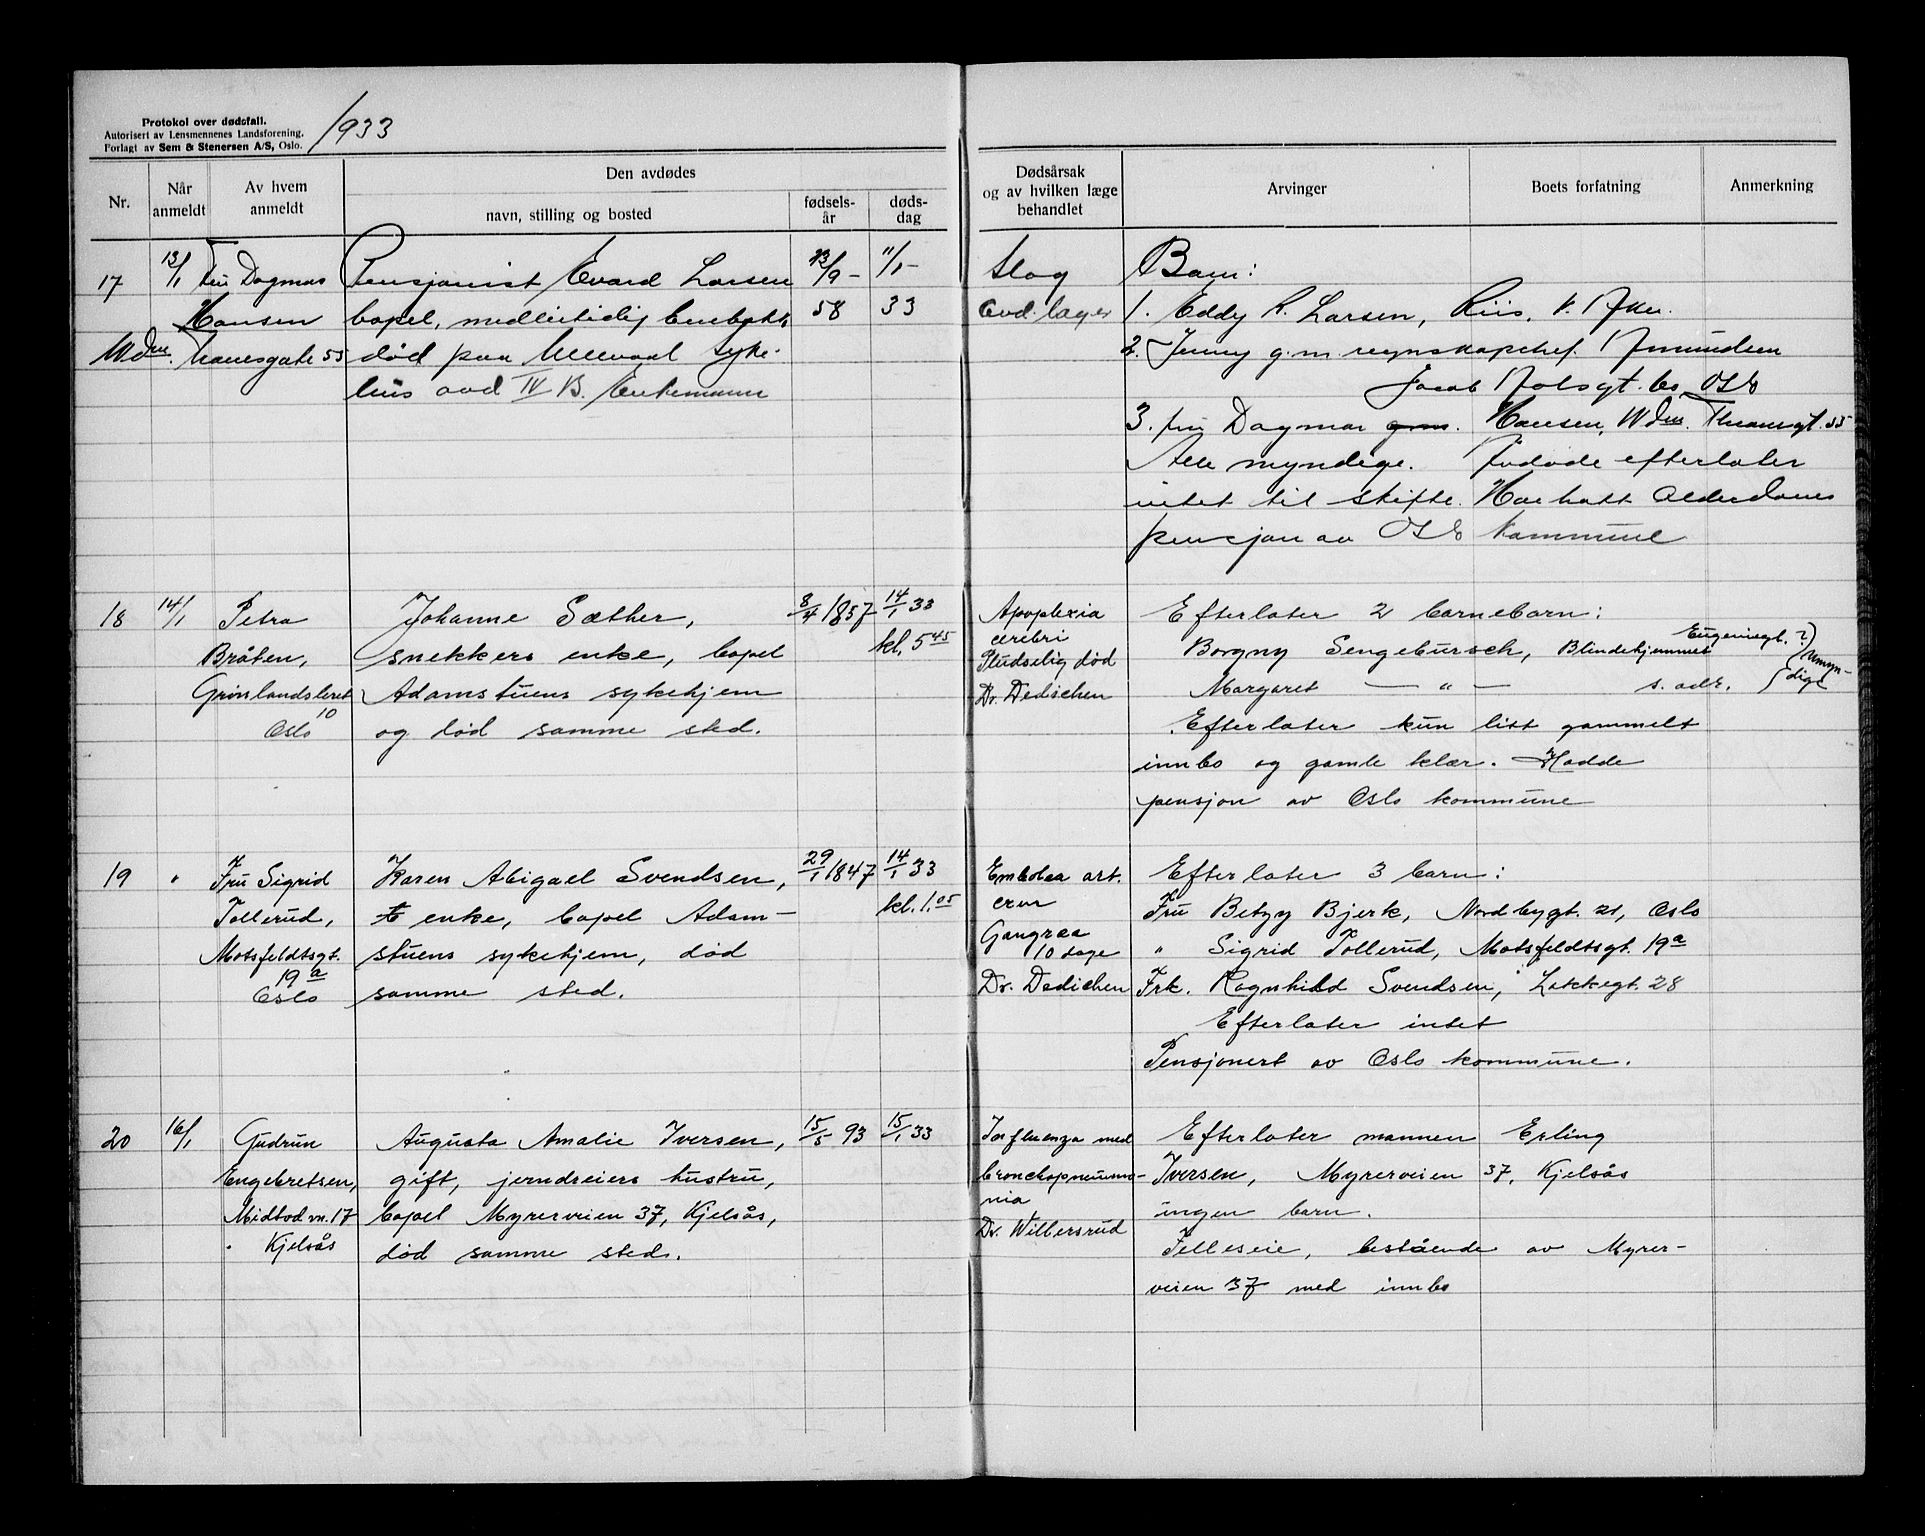 Protokol over dødsfall.
Autorisert av Lensmennenes Landsforening.
Forlagt av Sem & Stenersen A/S, Oslo.
1933
Nr.
Når anmeldt
Av hvem anmeldt
Den avdødes
navn, stilling og bosted
fødsels-år
døds-dag
Dødsårsak og av hvilken læge behandlet
Arvinger
Boets forfatning
Anmerkning
17
13/1
Fru Dagmar
Hansen
Wdm. Thranesgate 55
Pensjonist Evard Larsen
bopel, midlertidig
død paa Ullevaal Syke-
hus avd IV B. Enkemann
23/9-
58
11/1-
33
Slag
avd. læge
Barn:
1. Eddy R. Larsen, Riis, V. Aker.
2. Jenny g.m. regnskapschef. Amundsen
Jacob Aalsgt. Oslo
3. fru Dagmar Hansen, Wdm. Thranesgt. 55
Alle myndige. Avdøde efterlater
intet til skifte. Har hatt Alderdoms
pensjon av Oslo kommune
18
14/1
Petra
Bråten,
Grønlandsleret
10
Oslo
Johanne Sæther,
snekkers enke, bopel
Adamstuens sykehjem
og død samme sted.
3/4 1857
14/1 33
kl. 5 45
Apoplexia
cerebri
Pludselig død
Dr. Dedichen
Efterlater 2 barnebarn:
Borgny Sengebusch, Blindehjemmet Eugeniegt. ?) umyn-
Margaret — " — s. adr. dige
Efterlater kun litt gammelt
innbo og gamle klær. Hadde
pensjon av Oslo kommune
19
"
Fru Sigrid
Tollerud,
Motzfeldtsgt.
19a
Oslo
Karen Abigael Svendsen,
enke, bopel Adam-
stuens sykehjem, død
samme sted.
29/1 1847
14/1 33
kl. 1.05
Embolea art.
crur
Gangræa
10 dage
Dr. Dedichen
Efterlater 3 barn:
Fru Betzy Bjerk, Nordbygt. 21, Oslo
" Sigrid Tollerud, Motsfeldtsgt. 19a
Frk. Ragnhild Svendsen, Lakkegt. 28
Efterlater intet
Pensjonert av Oslo kommune.
20
16/1
Gudrun
Engebretsen,
Midtod vn. 17
Kjelsås
Augusta Amalie Iversen,
gift, jerndreiers hustru,
bopel Myrerveien 37, Kjelsås,
død samme sted.
15/5 93
15/1 33
Influenza med
bronchopneumo-
nia
Dr. Willersrud
Efterlater mannen Erling
Iversen, Myrerveien 37, Kjelsås
ingen barn.
Felleseie, bestående av Myrer-
veien 37 med innbo